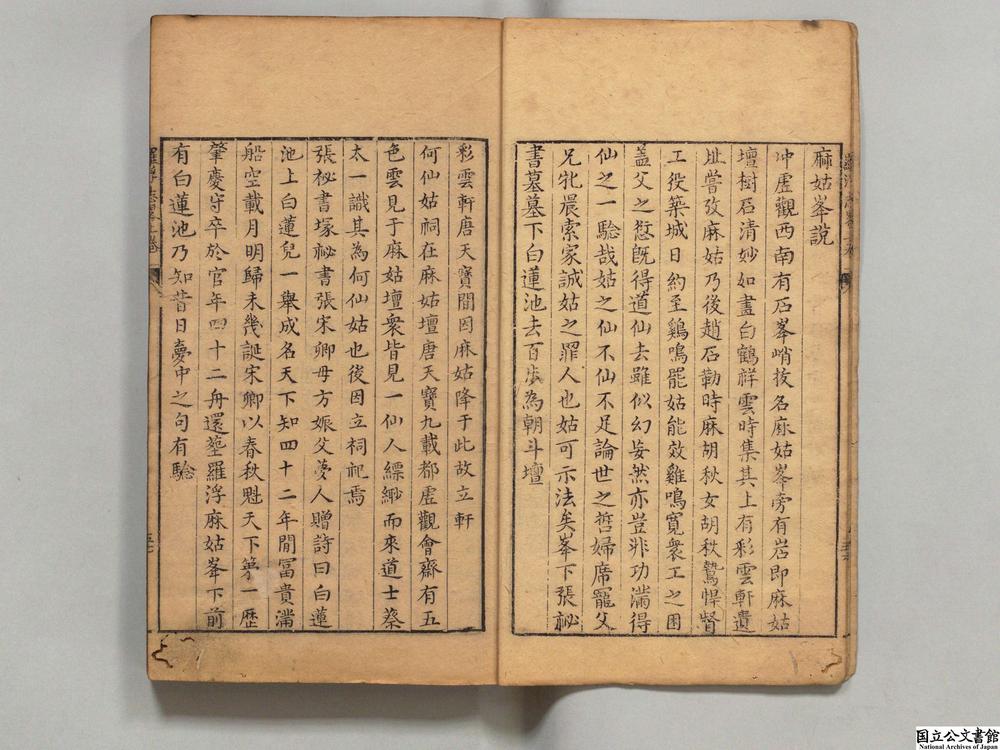 麻姑峯說
冲虛觀西南有石峯峭拔名麻姑峯旁有岩即麻姑
壇樹石清妙如畫白鶴祥雲時集其上有彩雲軒遺
址嘗攷麻姑乃後趙石勒時麻胡秋女胡秋鷙悍督
工役築城日約至鷄鳴罷姑能效雞鳴寛衆工之困
盖父之愆既得道仙去雖似幻妄然亦豈非功滿得
仙之一驗哉姑之仙不仙不足論世之哲婦席寵父
兄牝晨索家誠姑之罪人也姑可示法矣峯下張秘
書墓墓下白蓮池去百步為朝斗壇
彩雲軒唐天寶間因麻姑降于此故立軒
何仙姑祠在麻姑壇唐天寶九載都虛觀會齋有五
色雲見于麻姑壇衆皆見一仙人縹緲而來道士蔡
太一識其為何仙姑也後因立祠祀焉
張祕書塚祕書張宋卿母方娠父夢人贈詩曰白蓮
池上白蓮兒一舉成名天下知四十二年閒冨貴滿
船空載月明歸未幾誕宋卿以春秋魁天下第一歷
肇慶守卒於官年四十二舟還塟羅浮麻姑峯下前
有白蓮池乃知昔日夢中之句有驗
国立公文書館
National Archives of Japan